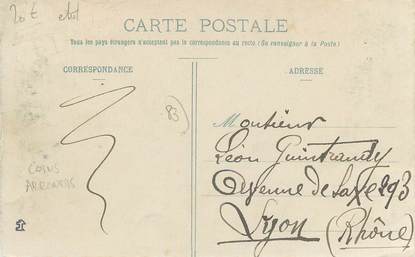 20 €
CARTE POSTALE
Tous les pays étrangers n'acceptent pas la correspondance au recto (Se renseigner à la Poste)
CORRESPONDANCE
ADRESSE
83
Monsieur
Léon Guintrandy
Avenue de Saxe 293
Lyon (Rhône)